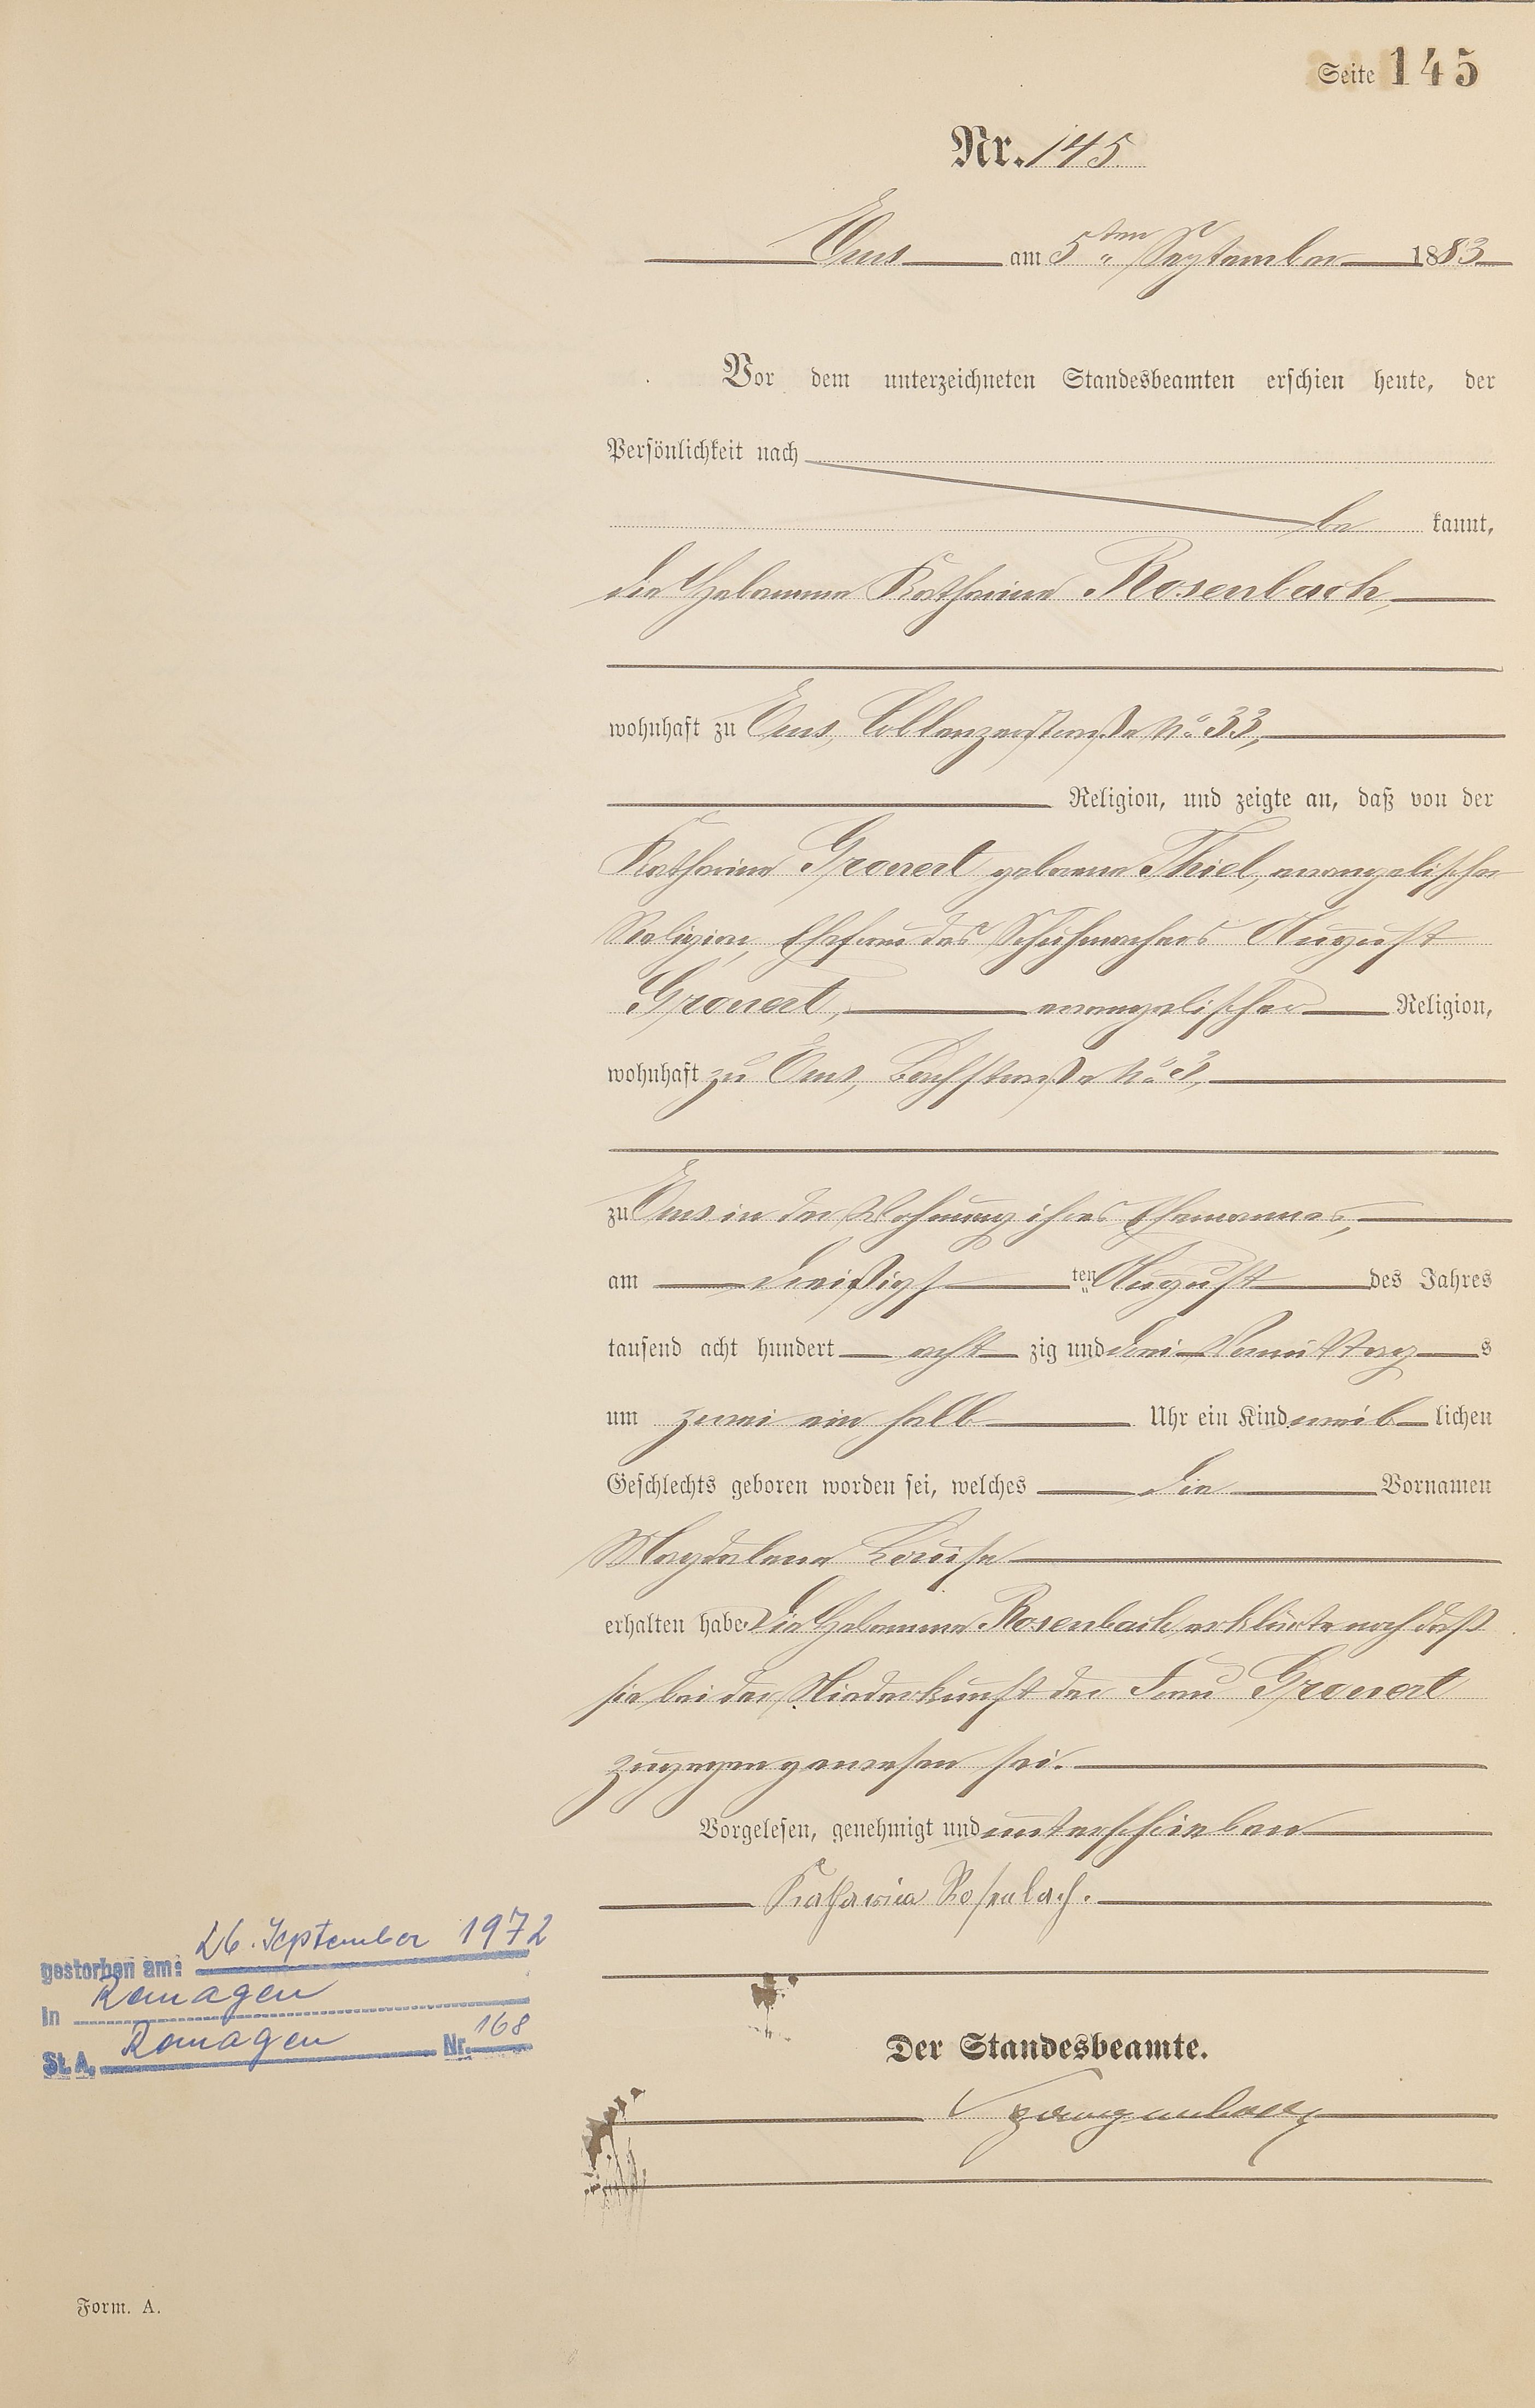 Seite 145
Nr. 145.
Ems am 5ten September 1883
Vor dem unterzeichneten Standesbeamten erschien heute, der
Persönlichkeit nach
be kannt,
die Hebamme Katharina Rosenbach,
wohnhaft zu Ems, Coblenzerstraße No. 33,
Religion, und zeigte an, daß von der
Katharina Gronert geborene Thiel, evangelischer
Religion, Ehefrau des Schuhmachers August
Gronert, evangelischer Religion,
wohnhaft zu Ems, Bachstraße No. 3,
zu Ems in der Wohnung ihres Ehemannes,
am dreißigs ten August des Jahres
tausend acht hundert acht zig und drei Vormittag s
um zwei ein halb Uhr ein Kind weib lichen
Geschlechts geboren worden sei, welches die Vornamen
Magdalena Louise
erhalten habe. Die Hebamme Rosenbach erklärte noch daß
sie bei der Niederkunft der Frau Gronert
zugegen gewesen sei.
Vorgelesen, genehmigt und unterschrieben
Katharina Rosenbach.
Der Standesbeamte.
gestorben am: 26. September 1972
in Remagen
St. A. Remagen Nr. 168
Form. A.